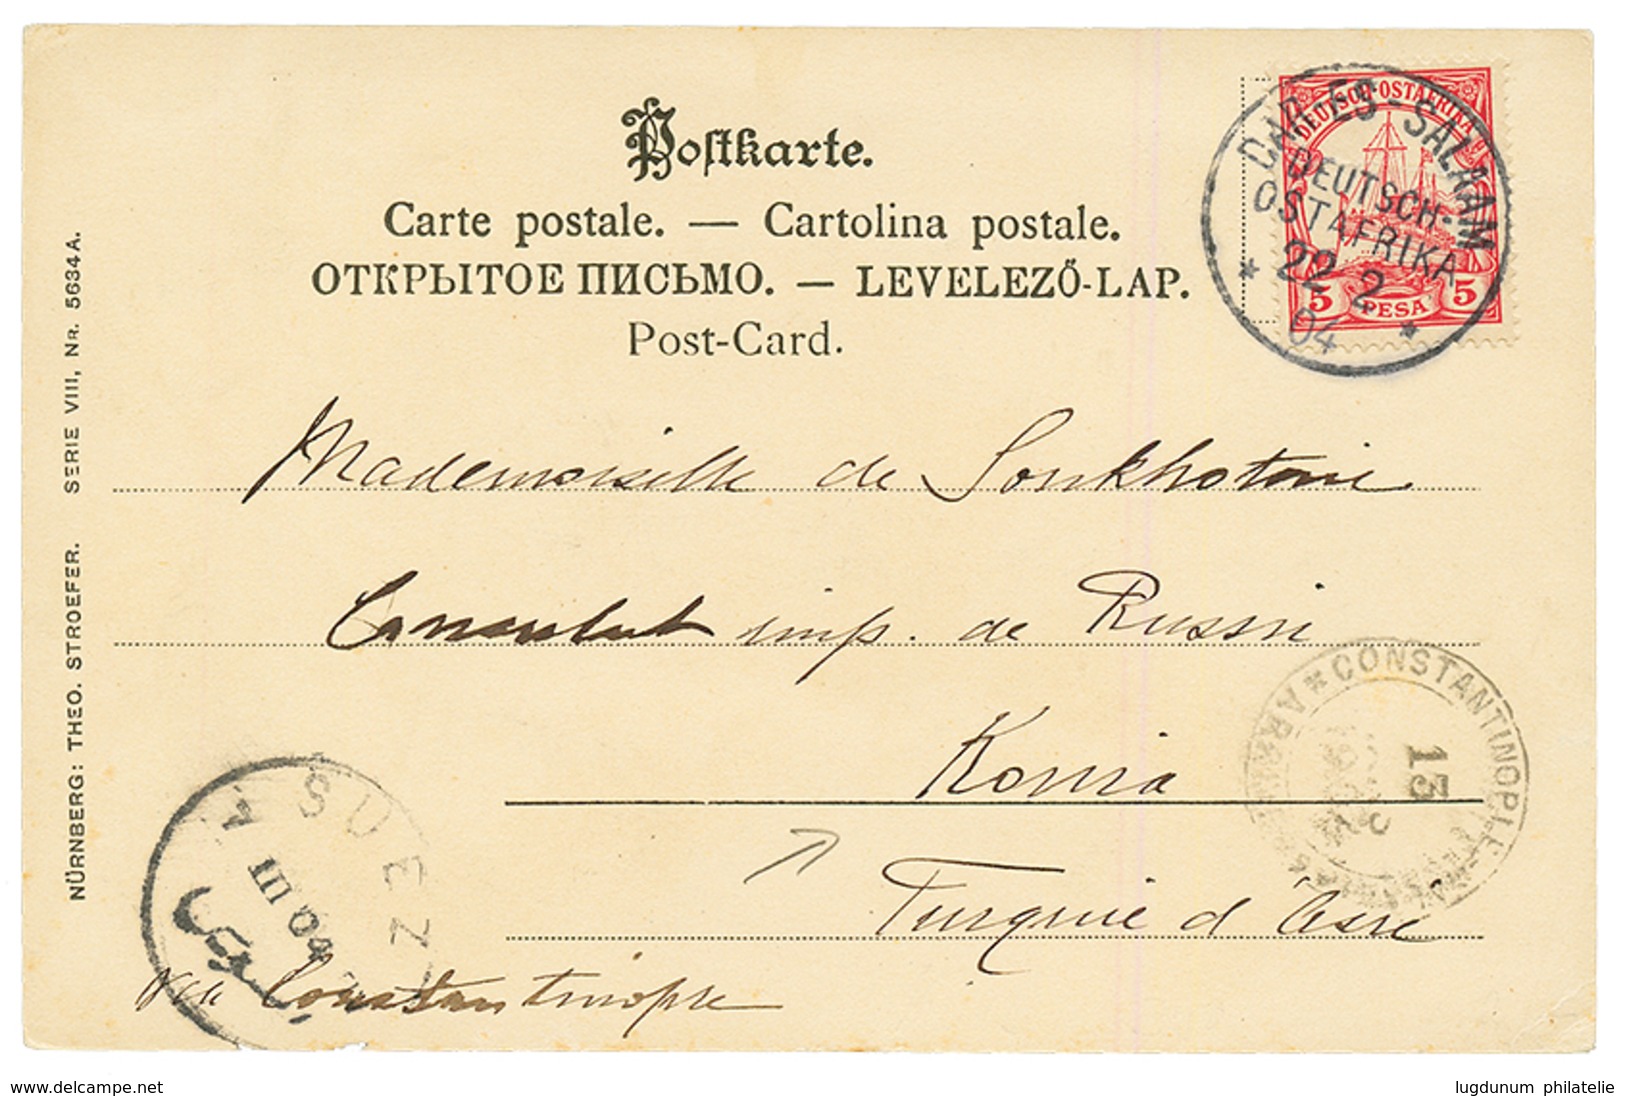 Postkarte.
Carte postale. — Cartolina postale.
ОТКРЫТОЕ ПИСЬМО. — LEVELEZŐ-LAP.
Post-Card.
DEUTSCH-OSTAFRIKA
5 PESA 5
DAR-ES-SALAAM
DEUTSCH-
OSTAFRIKA
* 22 2 *
04
SERIE VIII, NR. 5634A.
NÜRNBERG: THEO. STROEFER.
Mademoiselle de Soukhotine
Consulat imp. de Russie
Konia
Turquie d'Asie
via Constantinople
CONSTANTINOPLE
13
SUEZ
III 04
www.delcampe.net
lugdunum philatelie